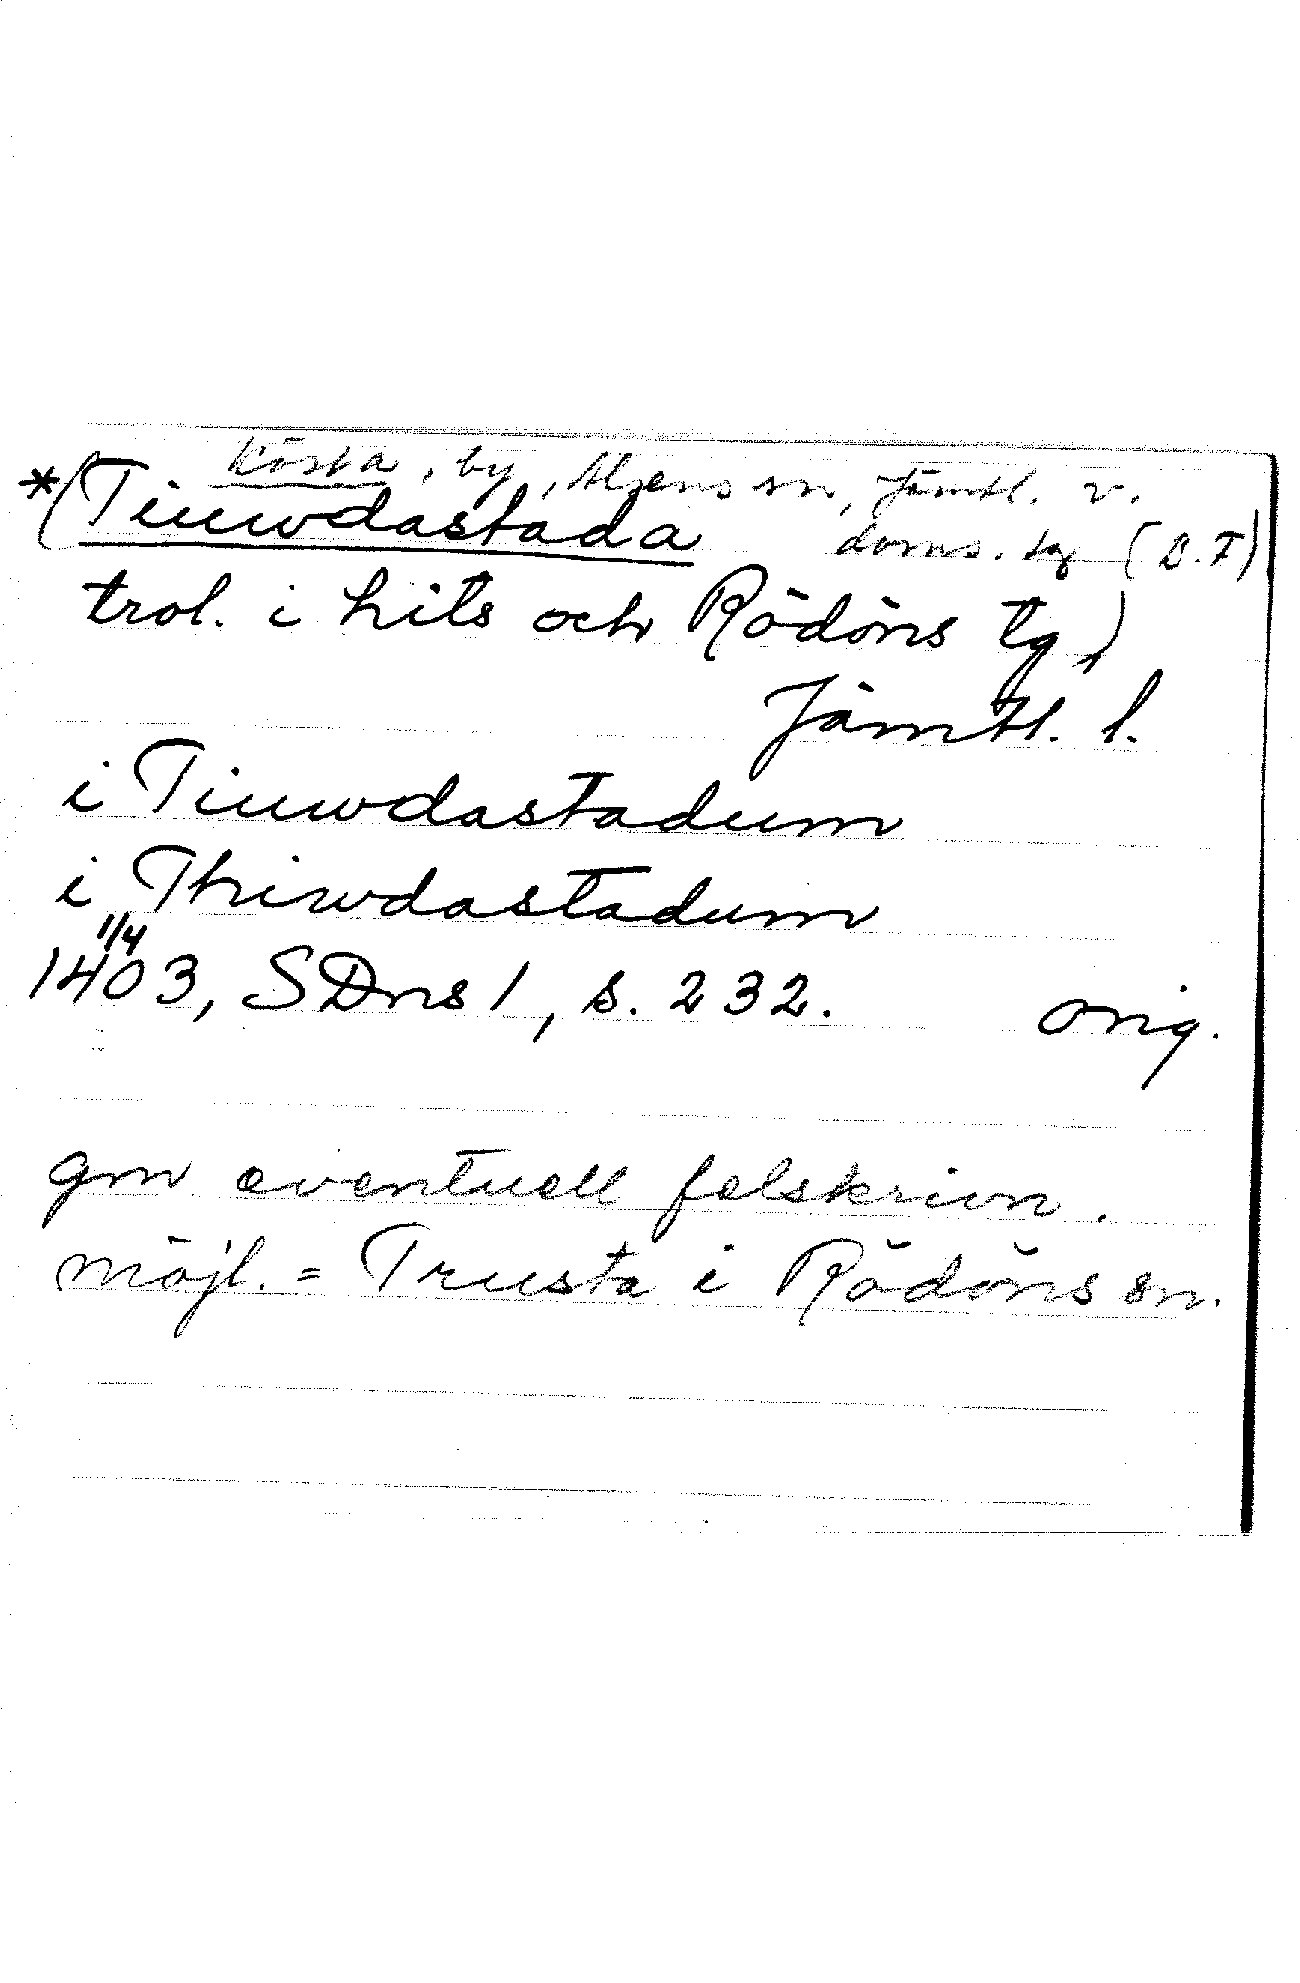 Kösta, by, Alsens sn, Jämtl. v.
doms. tg (B.F)
*(Tiuwdastada
trol. i hits och Rödöns tg)
Jämtl. l.
i Tiuwdastadum
i Thiwdastadum
1403, 1/4 SDns 1, s. 232. orig.
gm eventuell felskrivn.
möjl. = Trusta i Rödöns sn.